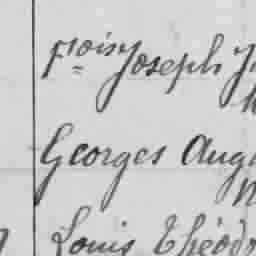 Fçois Joseph
Georges Aug
Louis Théod